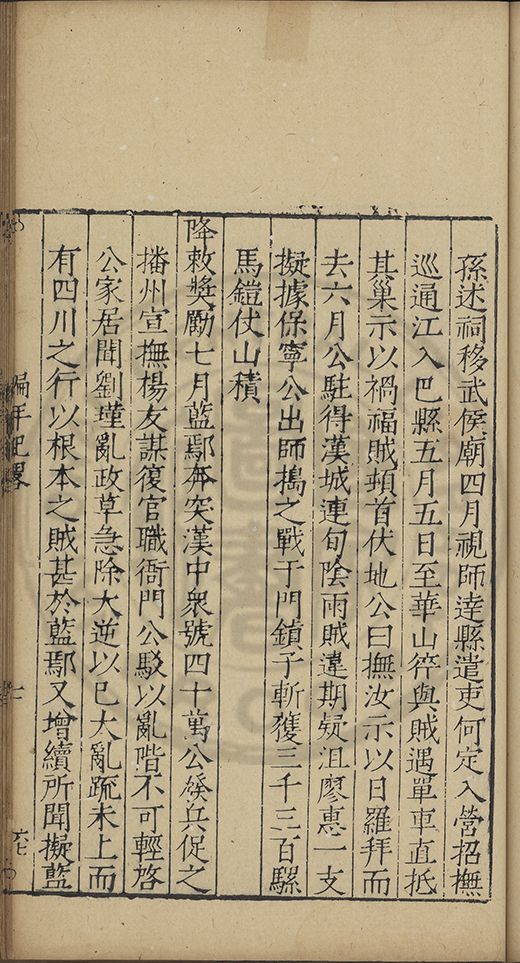 孫述祠移武侯廟四月視師達縣遣吏何定入營招撫
巡通江入巴縣五月五日至華山猝與賊遇單車直抵
其巢示以禍福賊頓首伏地公曰撫汝示以日羅拜而
去六月公駐得漢城連旬陰雨賊違期疑沮廖惠一支
擬據保寧公出師搗之戰于門鎮子斬獲三千三百騾
馬鎧仗山積
降敕獎勵七月藍鄢奔突漢中衆號四十萬公發兵促之
播州宣撫楊友謀復官職衙門公駁以亂階不可輕啓
公家居聞劉瑾亂政草急除大逆以已大亂疏未上而
有四川之行以根本之賊甚於藍鄢又增續所聞擬藍
編年紀畧
七
六七